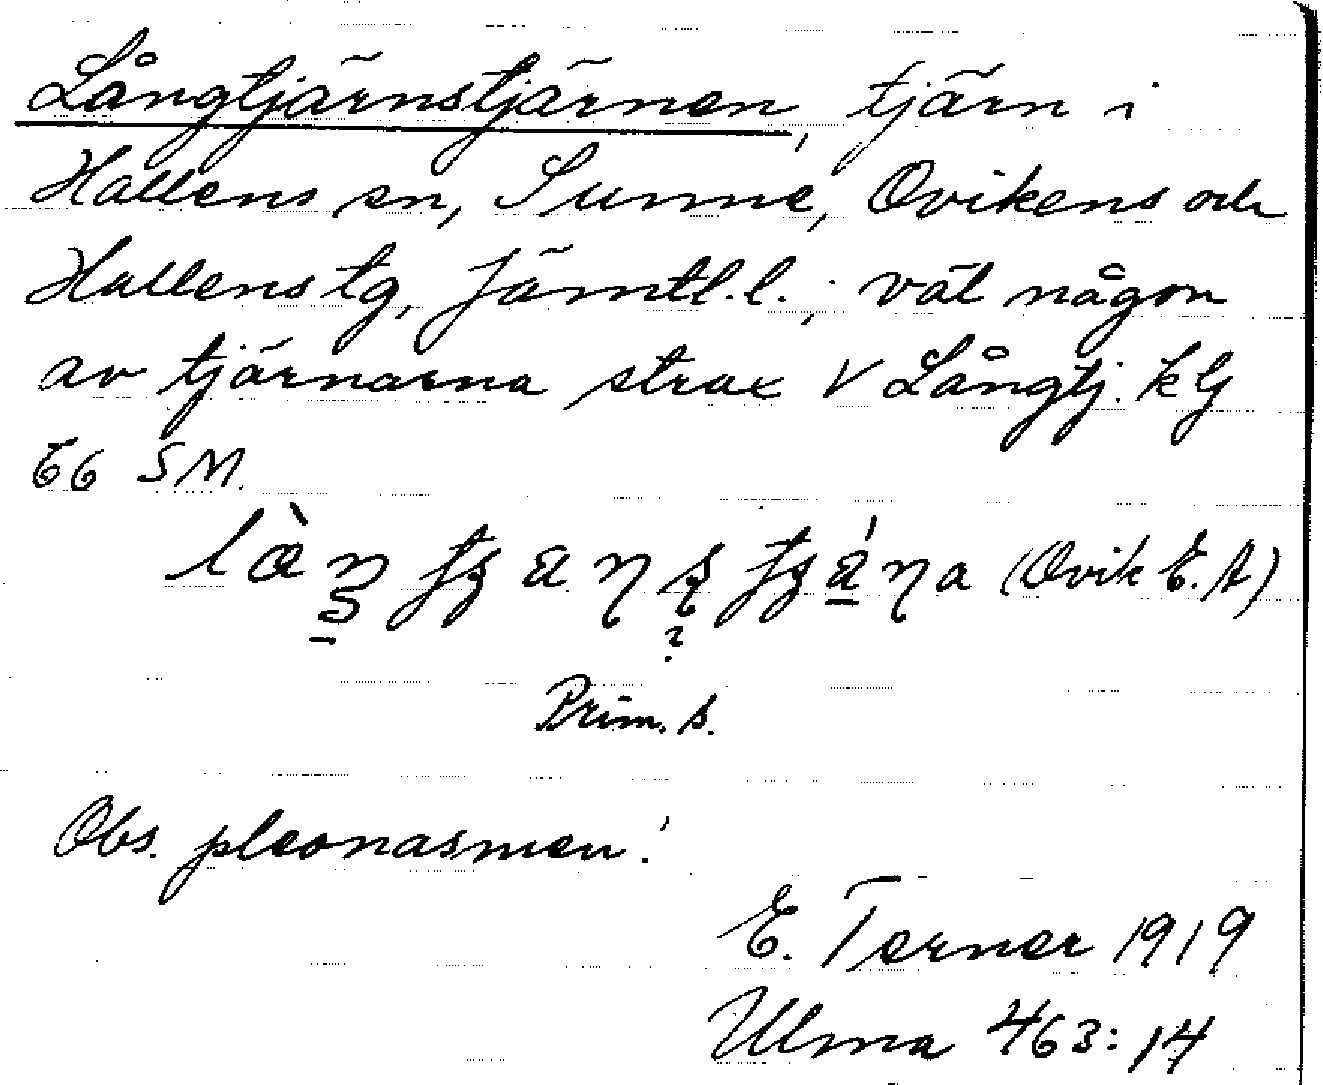 Långtjärnstjärnen, tjärn i
Hallens sn, Sunne, Ovikens och
Hallens tg, Jämtl. l.; väl någon
av tjärnarna strax V Långtj. kg
66 SM.
(Ovik E. A)
Prim. s.
Obs. pleonasmen!
E. Terner 1919
Ulma 463:14